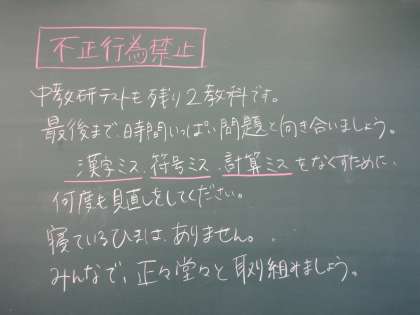 不正行為禁止
中教研テストも残り2教科です。
最後まで、時間いっぱい問題と向き合いましょう。
漢字ミス、符号ミス、計算ミスをなくすために、
何度も見直しをしてください。
寝ているひまは、ありません。
みんなで、正々堂々と取り組みましょう。